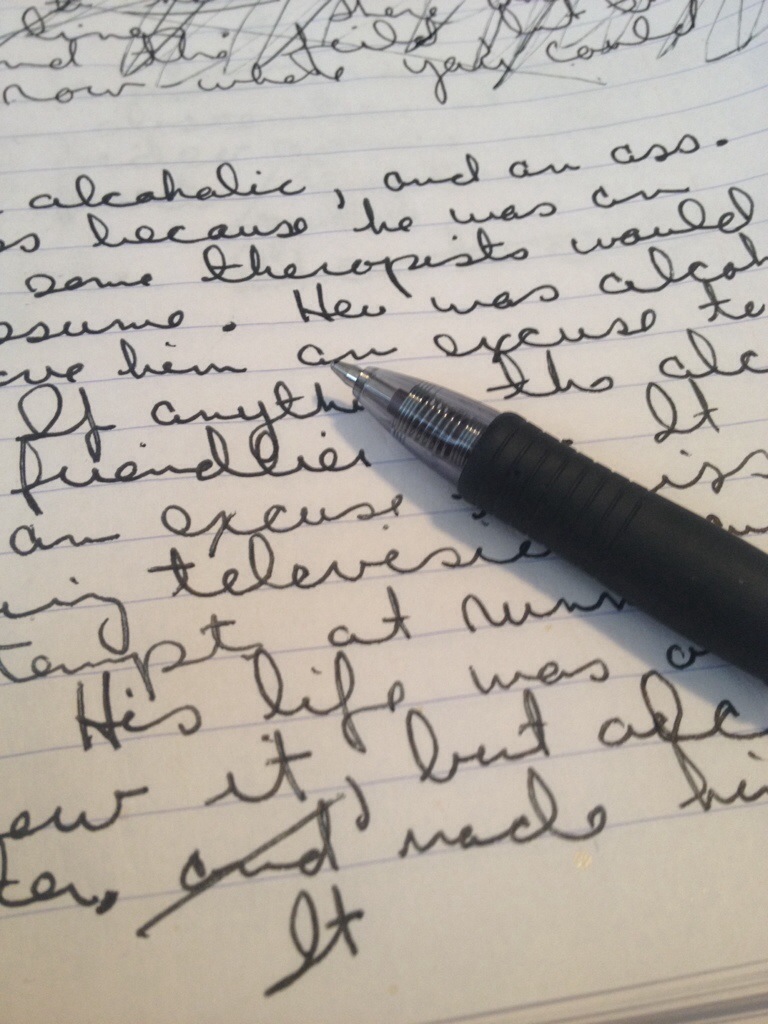 could
alcoholic, and an ass.
because he was an
some therapists would
ssume. Her was alcoh
ave him an excuse to
If anythi the alc
friendlier It
an excuse iss
ing televisio
tempt, at runn
His life was a
ew it, but alc
ter, and made hi
It